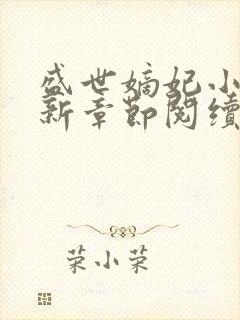 盛世嫡妃小
新章節閱續
荣小荣